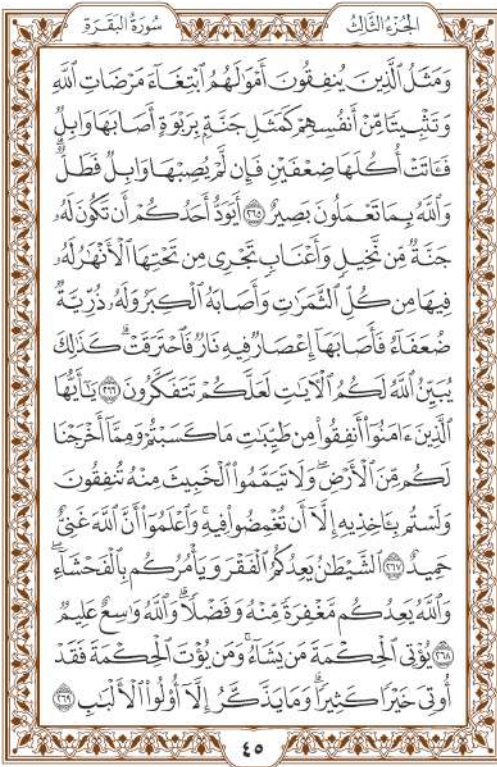 الجُزْءُ الثَّالِثُ
سُورَةُ البَقَرَةِ
وَمَثَلُ ٱلَّذِينَ يُنفِقُونَ أَمْوَٰلَهُمُ ٱبْتِغَآءَ مَرْضَاتِ ٱللَّهِ
وَتَثْبِيتًا مِّنْ أَنفُسِهِمْ كَمَثَلِ جَنَّةٍۭ بِرَبْوَةٍ أَصَابَهَا وَابِلٌ
فَـَٔاتَتْ أُكُلَهَا ضِعْفَيْنِ فَإِن لَّمْ يُصِبْهَا وَابِلٌ فَطَلٌّۗ
وَٱللَّهُ بِمَا تَعْمَلُونَ بَصِيرٌ ۝٢٦٥ أَيَوَدُّ أَحَدُكُمْ أَن تَكُونَ لَهُۥ
جَنَّةٌ مِّن نَّخِيلٍ وَأَعْنَابٍ تَجْرِى مِن تَحْتِهَا ٱلْأَنْهَٰرُ لَهُۥ
فِيهَا مِن كُلِّ ٱلثَّمَرَٰتِ وَأَصَابَهُ ٱلْكِبَرُ وَلَهُۥ ذُرِّيَّةٌ
ضُعَفَآءُ فَأَصَابَهَآ إِعْصَارٌ فِيهِ نَارٌ فَٱحْتَرَقَتْۗ كَذَٰلِكَ
يُبَيِّنُ ٱللَّهُ لَكُمُ ٱلْـَٔايَٰتِ لَعَلَّكُمْ تَتَفَكَّرُونَ ۝٢٦٦ يَٰٓأَيُّهَا
ٱلَّذِينَ ءَامَنُوٓا۟ أَنفِقُوا۟ مِن طَيِّبَٰتِ مَا كَسَبْتُمْ وَمِمَّآ أَخْرَجْنَا
لَكُم مِّنَ ٱلْأَرْضِۖ وَلَا تَيَمَّمُوا۟ ٱلْخَبِيثَ مِنْهُ تُنفِقُونَ
وَلَسْتُم بِـَٔاخِذِيهِ إِلَّآ أَن تُغْمِضُوا۟ فِيهِۚ وَٱعْلَمُوٓا۟ أَنَّ ٱللَّهَ غَنِىٌّ
حَمِيدٌ ۝٢٦٧ ٱلشَّيْطَٰنُ يَعِدُكُمُ ٱلْفَقْرَ وَيَأْمُرُكُم بِٱلْفَحْشَآءِۖ
وَٱللَّهُ يَعِدُكُم مَّغْفِرَةً مِّنْهُ وَفَضْلًاۗ وَٱللَّهُ وَٰسِعٌ عَلِيمٌ
۝٢٦٨ يُؤْتِى ٱلْحِكْمَةَ مَن يَشَآءُۚ وَمَن يُؤْتَ ٱلْحِكْمَةَ فَقَدْ
أُوتِىَ خَيْرًا كَثِيرًاۗ وَمَا يَذَّكَّرُ إِلَّآ أُو۟لُوا۟ ٱلْأَلْبَٰبِ ۝٢٦٩
٤٥